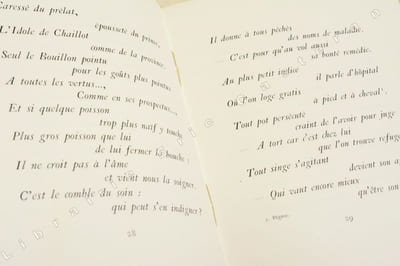 Caressé du prélat,
épousseté du prince,
L'Idole de Chaillot
comme de la province.
Seul le Bouillon pointu
pour les goûts plus pointus
A toutes les vertus...,
Comme en ses prospectus...,
Et si quelque poisson
trop plus naïf y touche
Plus gros poisson que lui
de lui fermer la bouche :
Il ne croit pas à l'âme
et vient nous la soigner.
C'est le comble du soin :
qui peut s'en indigner ?
28
Il donne à tous péchés
des noms de maladie.
C'est pour qu'au vol aussi
sa bonté remédie.
Au plus petit
il parle d'hôpital
Où l'on loge gratis
à pied et à cheval¹.
Tout pot persécuté
craint de l'avoir pour juge
A tort car c'est chez lui
que l'on trouve refuge
Tout singe s'agitant
devient son
Qui vaut encore mieux
qu'être son
29